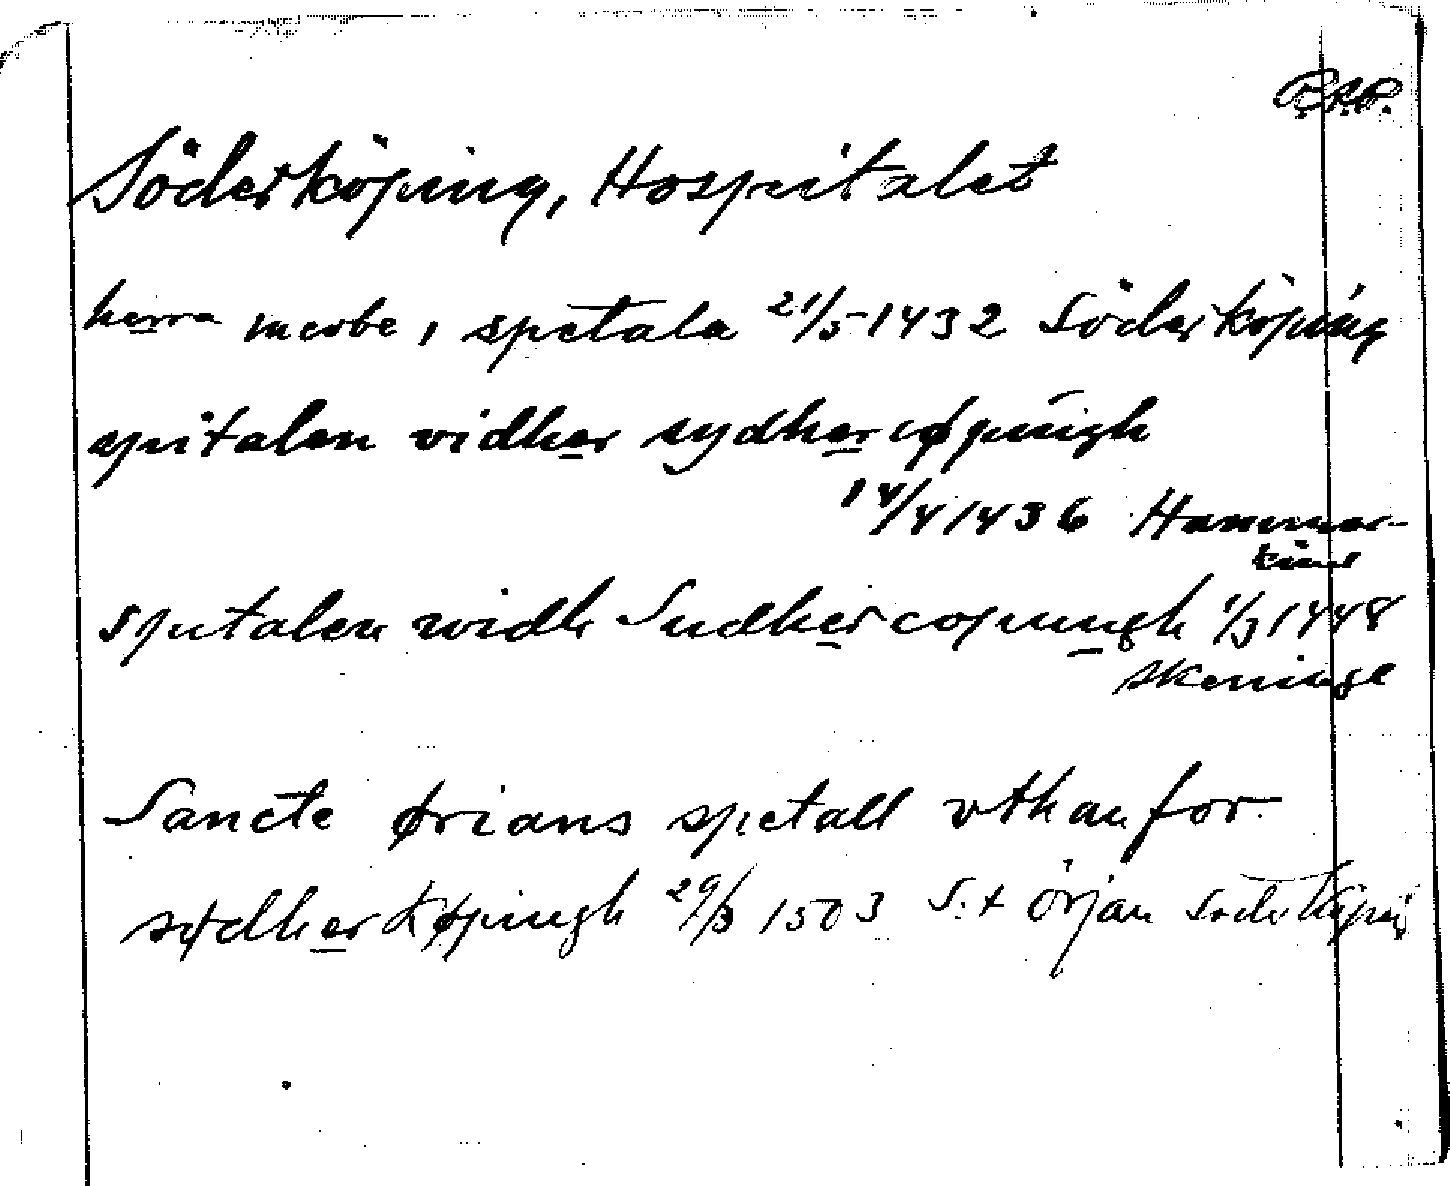 R.A.P.
Söderköping, Hospitalet
herra incobe, i spetala 21/5 1432 Söderköping
spitalen vidher sydhercøpingh
14/4 1436 Hammar-
kind
spitalen widh Sudhercopungh 1/3 1448
Skeninge
Sancte ørians spetall vthanfor
sødherkøpingh 29/3 1503 S:t örjan Söderköping